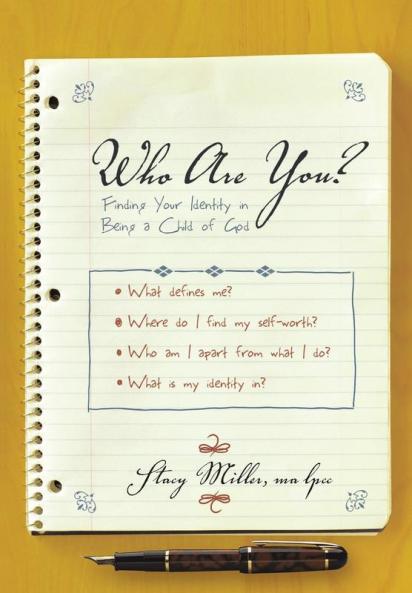 Who Are You?
Finding Your Identity in
Being a Child of God
• What defines me?
• Where do I find my self-worth?
• Who am I apart from what I do?
• What is my identity in?
Stacy Miller, ma lpcc